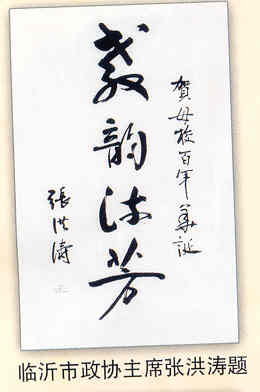 賀母校百年華誕
教韵流芳
張洪濤
临沂市政协主席张洪涛题